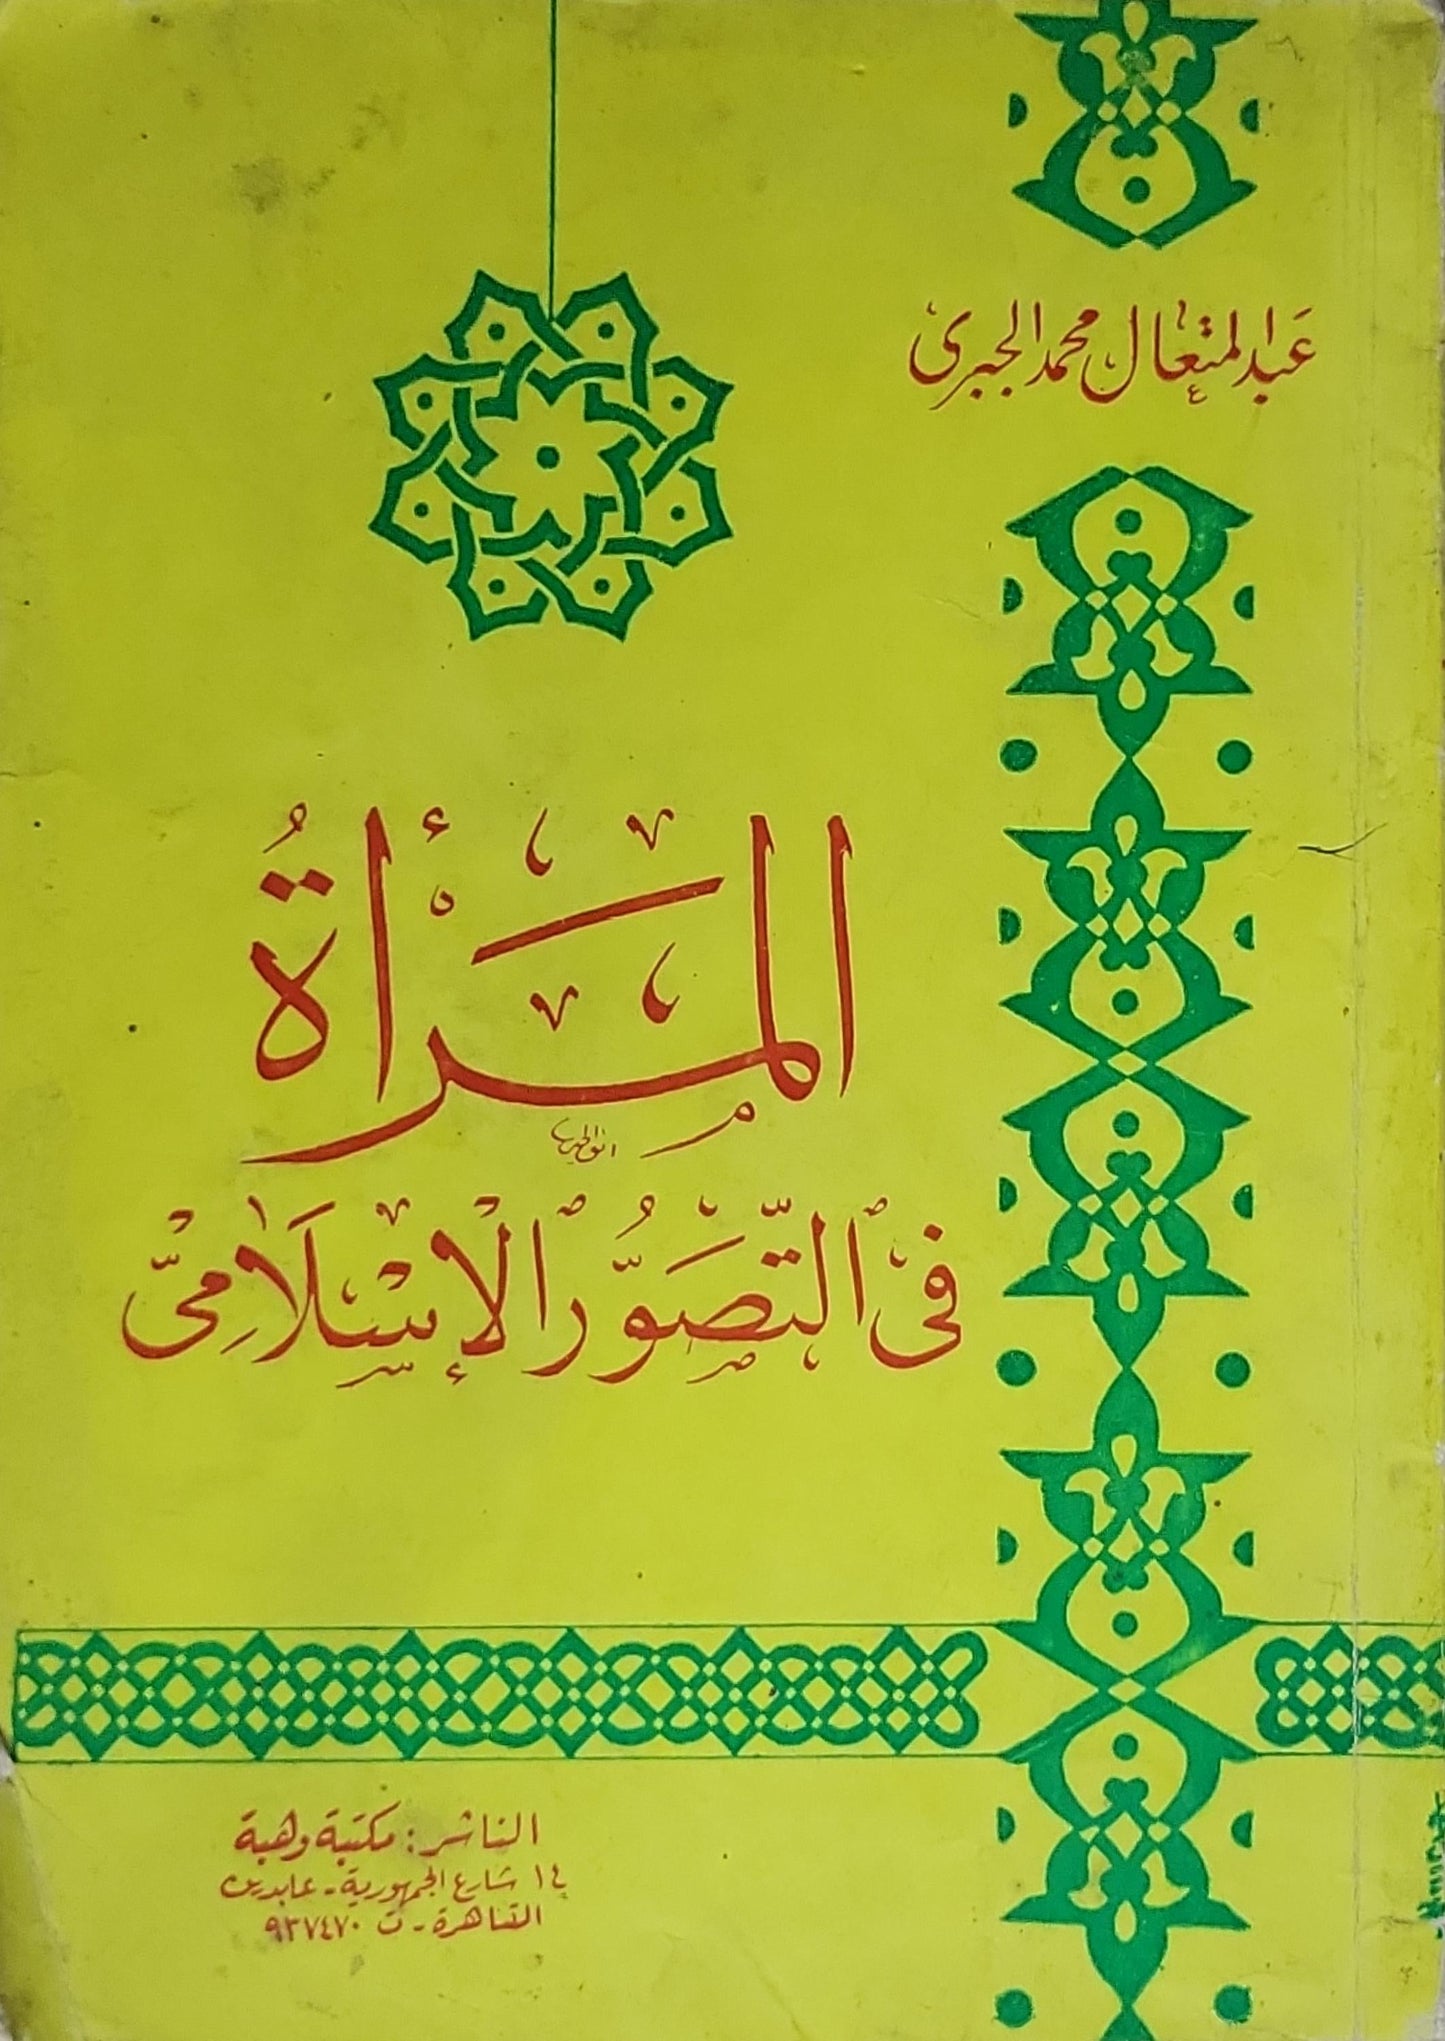 عبد المتعال محمد الجبرى
المرأة
فى التصور الإسلامى
الناشر : مكتبة وهبة
١٤ شارع الجمهورية - عابدين
القاهرة - ت ٩٣٧٤٧٠